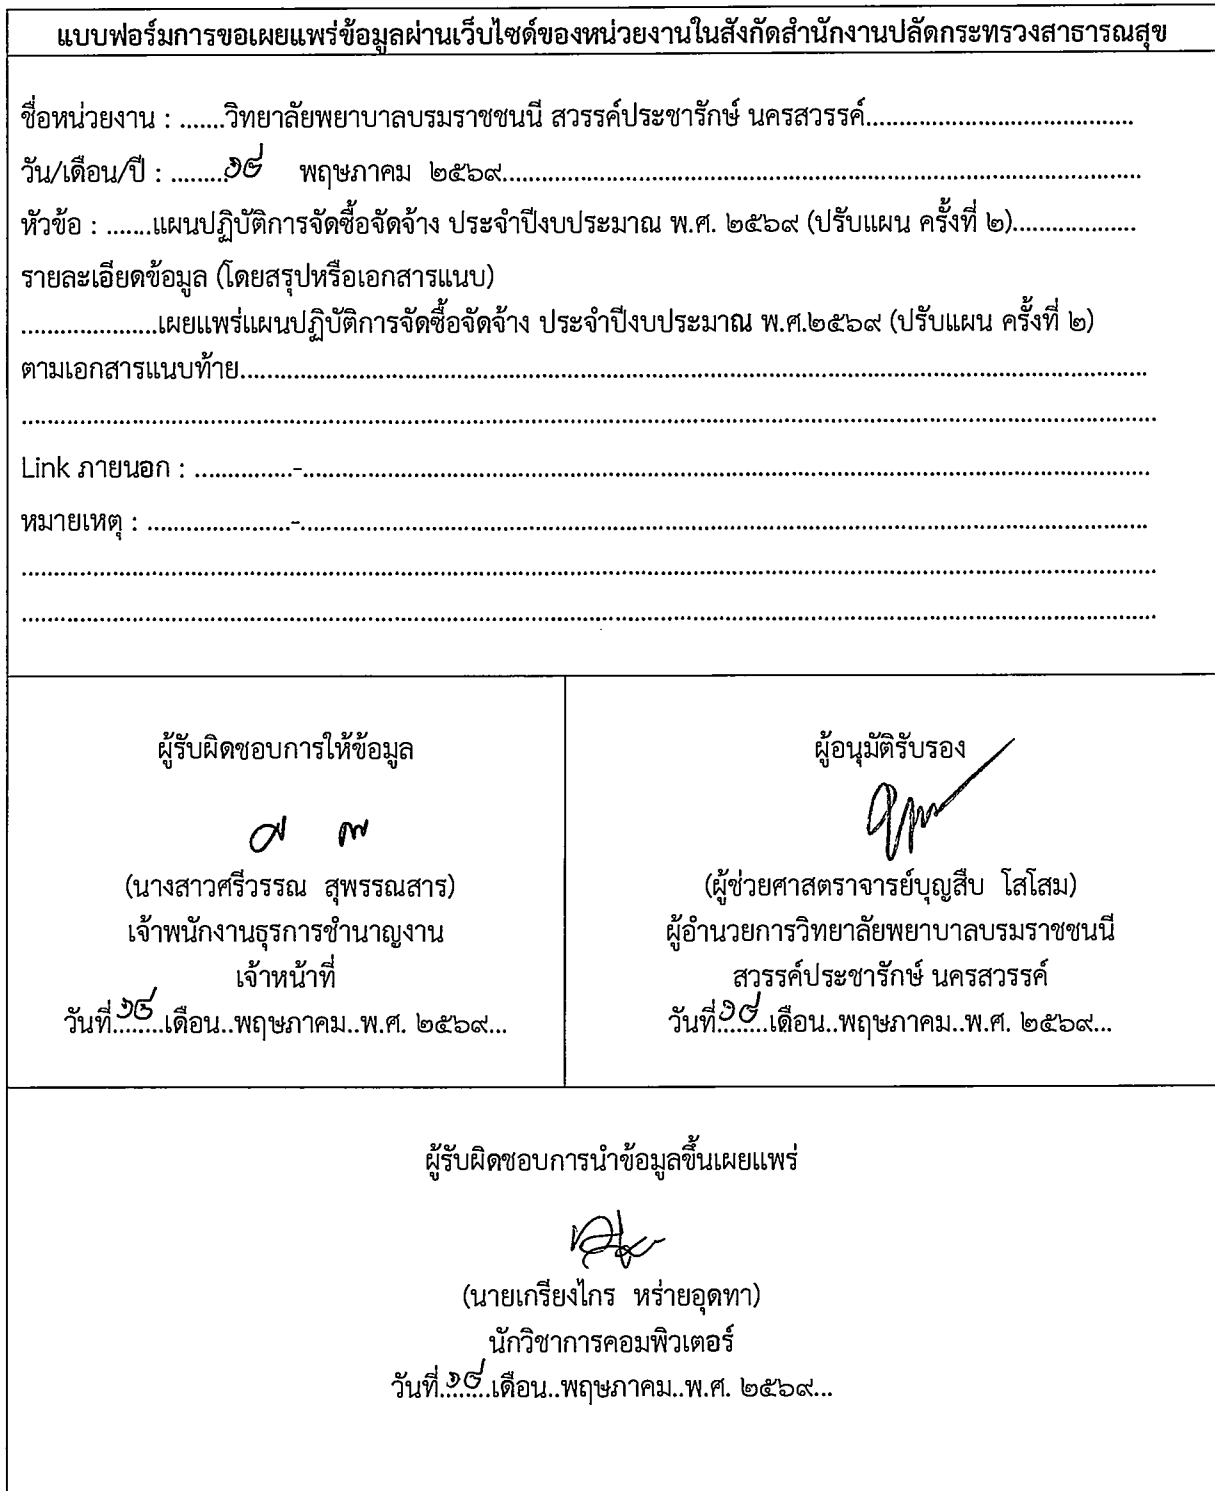 แบบฟอร์มการขอเผยแพร่ข้อมูลผ่านเว็บไซต์ของหน่วยงานในสังกัดสำนักงานปลัดกระทรวงสาธารณสุข
ชื่อหน่วยงาน : .......วิทยาลัยพยาบาลบรมราชชนนี สวรรค์ประชารักษ์ นครสวรรค์.........................................
วัน/เดือน/ปี : ......... พฤษภาคม ๒๕๖๙...................................................................................................
หัวข้อ : .......แผนปฏิบัติการจัดซื้อจัดจ้าง ประจำปีงบประมาณ พ.ศ. ๒๕๖๙ (ปรับแผน ครั้งที่ ๒)...................
รายละเอียดข้อมูล (โดยสรุปหรือเอกสารแนบ)
.....................เผยแพร่แผนปฏิบัติการจัดซื้อจัดจ้าง ประจำปีงบประมาณ พ.ศ.๒๕๖๙ (ปรับแผน ครั้งที่ ๒)
ตามเอกสารแนบท้าย...........................................................................................................................................
Link ภายนอก : ...............-..................................................................................................................................
หมายเหตุ : ......................-..................................................................................................................................
ผู้รับผิดชอบการให้ข้อมูล
(นางสาวศรีวรรณ สุพรรณสาร)
เจ้าพนักงานธุรการชำนาญงาน
เจ้าหน้าที่
วันที่........เดือน..พฤษภาคม..พ.ศ. ๒๕๖๙...
ผู้อนุมัติรับรอง
(ผู้ช่วยศาสตราจารย์บุญสืบ โสโสม)
ผู้อำนวยการวิทยาลัยพยาบาลบรมราชชนนี
สวรรค์ประชารักษ์ นครสวรรค์
วันที่........เดือน..พฤษภาคม..พ.ศ. ๒๕๖๙...
ผู้รับผิดชอบการนำข้อมูลขึ้นเผยแพร่
(นายเกรียงไกร หร่ายอุดทา)
นักวิชาการคอมพิวเตอร์
วันที่........เดือน..พฤษภาคม..พ.ศ. ๒๕๖๙...